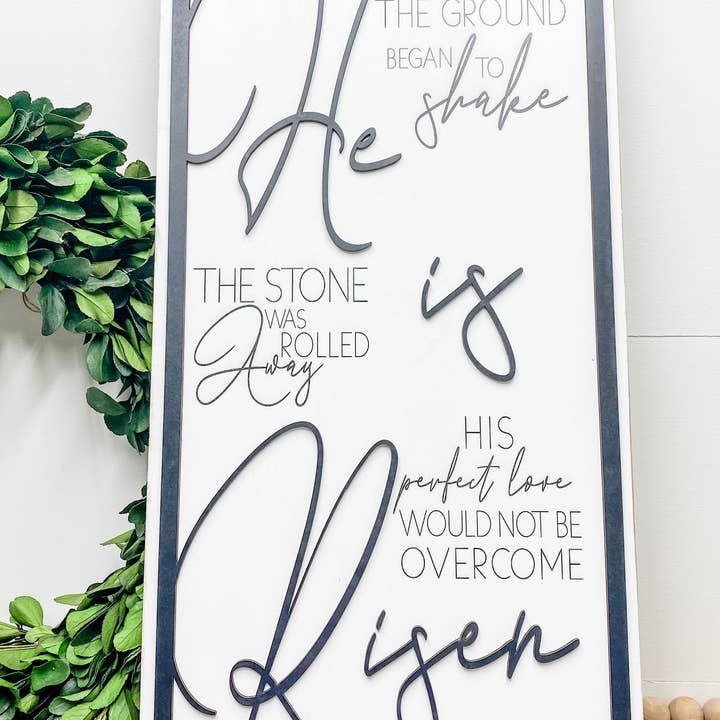 THE GROUND
BEGAN TO
shake
He
is
THE STONE
WAS
ROLLED
Away
HIS
perfect love
WOULD NOT BE
OVERCOME
Risen